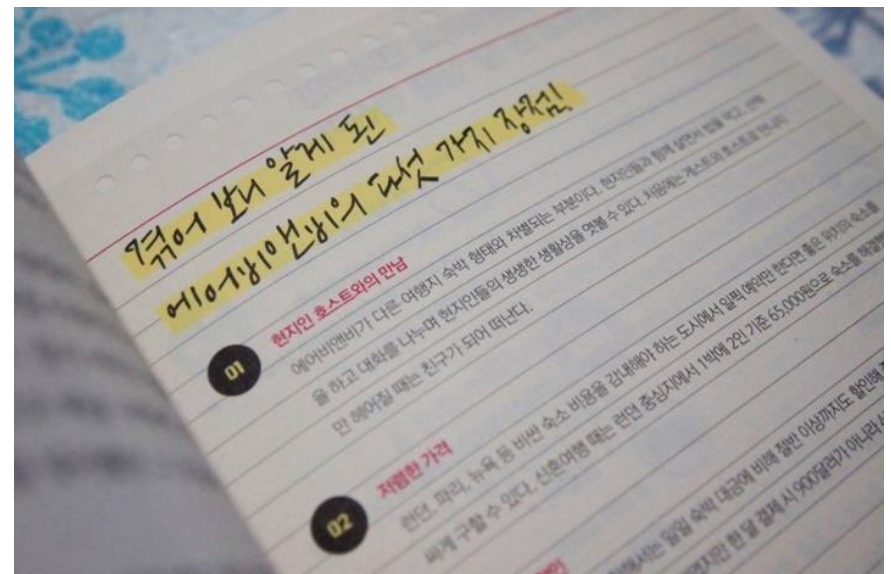 겪어 보니 알게 된
에어비앤비의 다섯 가지 장점!
01
현지인 호스트와의 만남
에어비앤비가 다른 여행지 숙박 형태와 차별되는 부분이다. 현지인들과 함께 살면서 밥을 먹고, 산책
을 하고 대화를 나누며 현지인들의 생생한 생활상을 엿볼 수 있다. 처음에는 게스트와 호스트로 만나지
만 헤어질 때는 친구가 되어 떠난다.
02
저렴한 가격
런던, 파리, 뉴욕 등 비싼 숙소 비용을 감내해야 하는 도시에서 일찍 예약만 한다면 좋은 위치의 숙소를
싸게 구할 수 있다. 신혼여행 때는 런던 중심지에서 1박에 2인 기준 65,000원으로 숙소를
일일 숙박 대금에 비해 절반 이상까지도 할인해
한 달 결제 시 900달러가 아니라